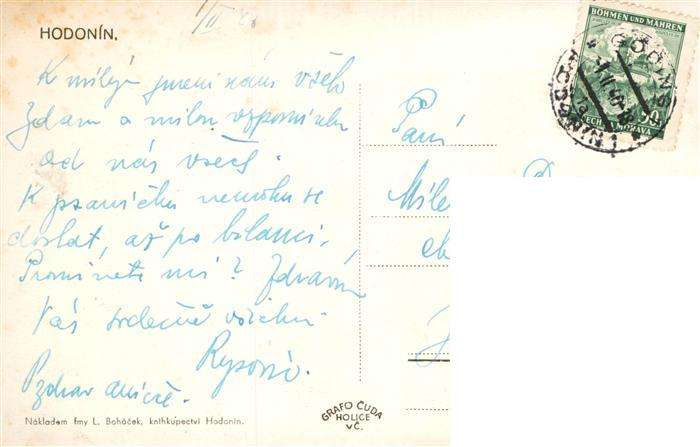 HODONÍN.
K milým jmeninám všeho
zdaru a milou vzpomínku
od nás všech.
K psaníčku nemohu se
dostat, až po bilanci.
Prominete mi? Zdravím
Vás srdečně všichni
Pozdrav
Nákladem fmy L. Boháček, knihkupectví Hodonín.
GRAFO ČUDA
HOLICE
v Č.
BÖHMEN UND MÄHREN
ČECHY A MORAVA
Paní